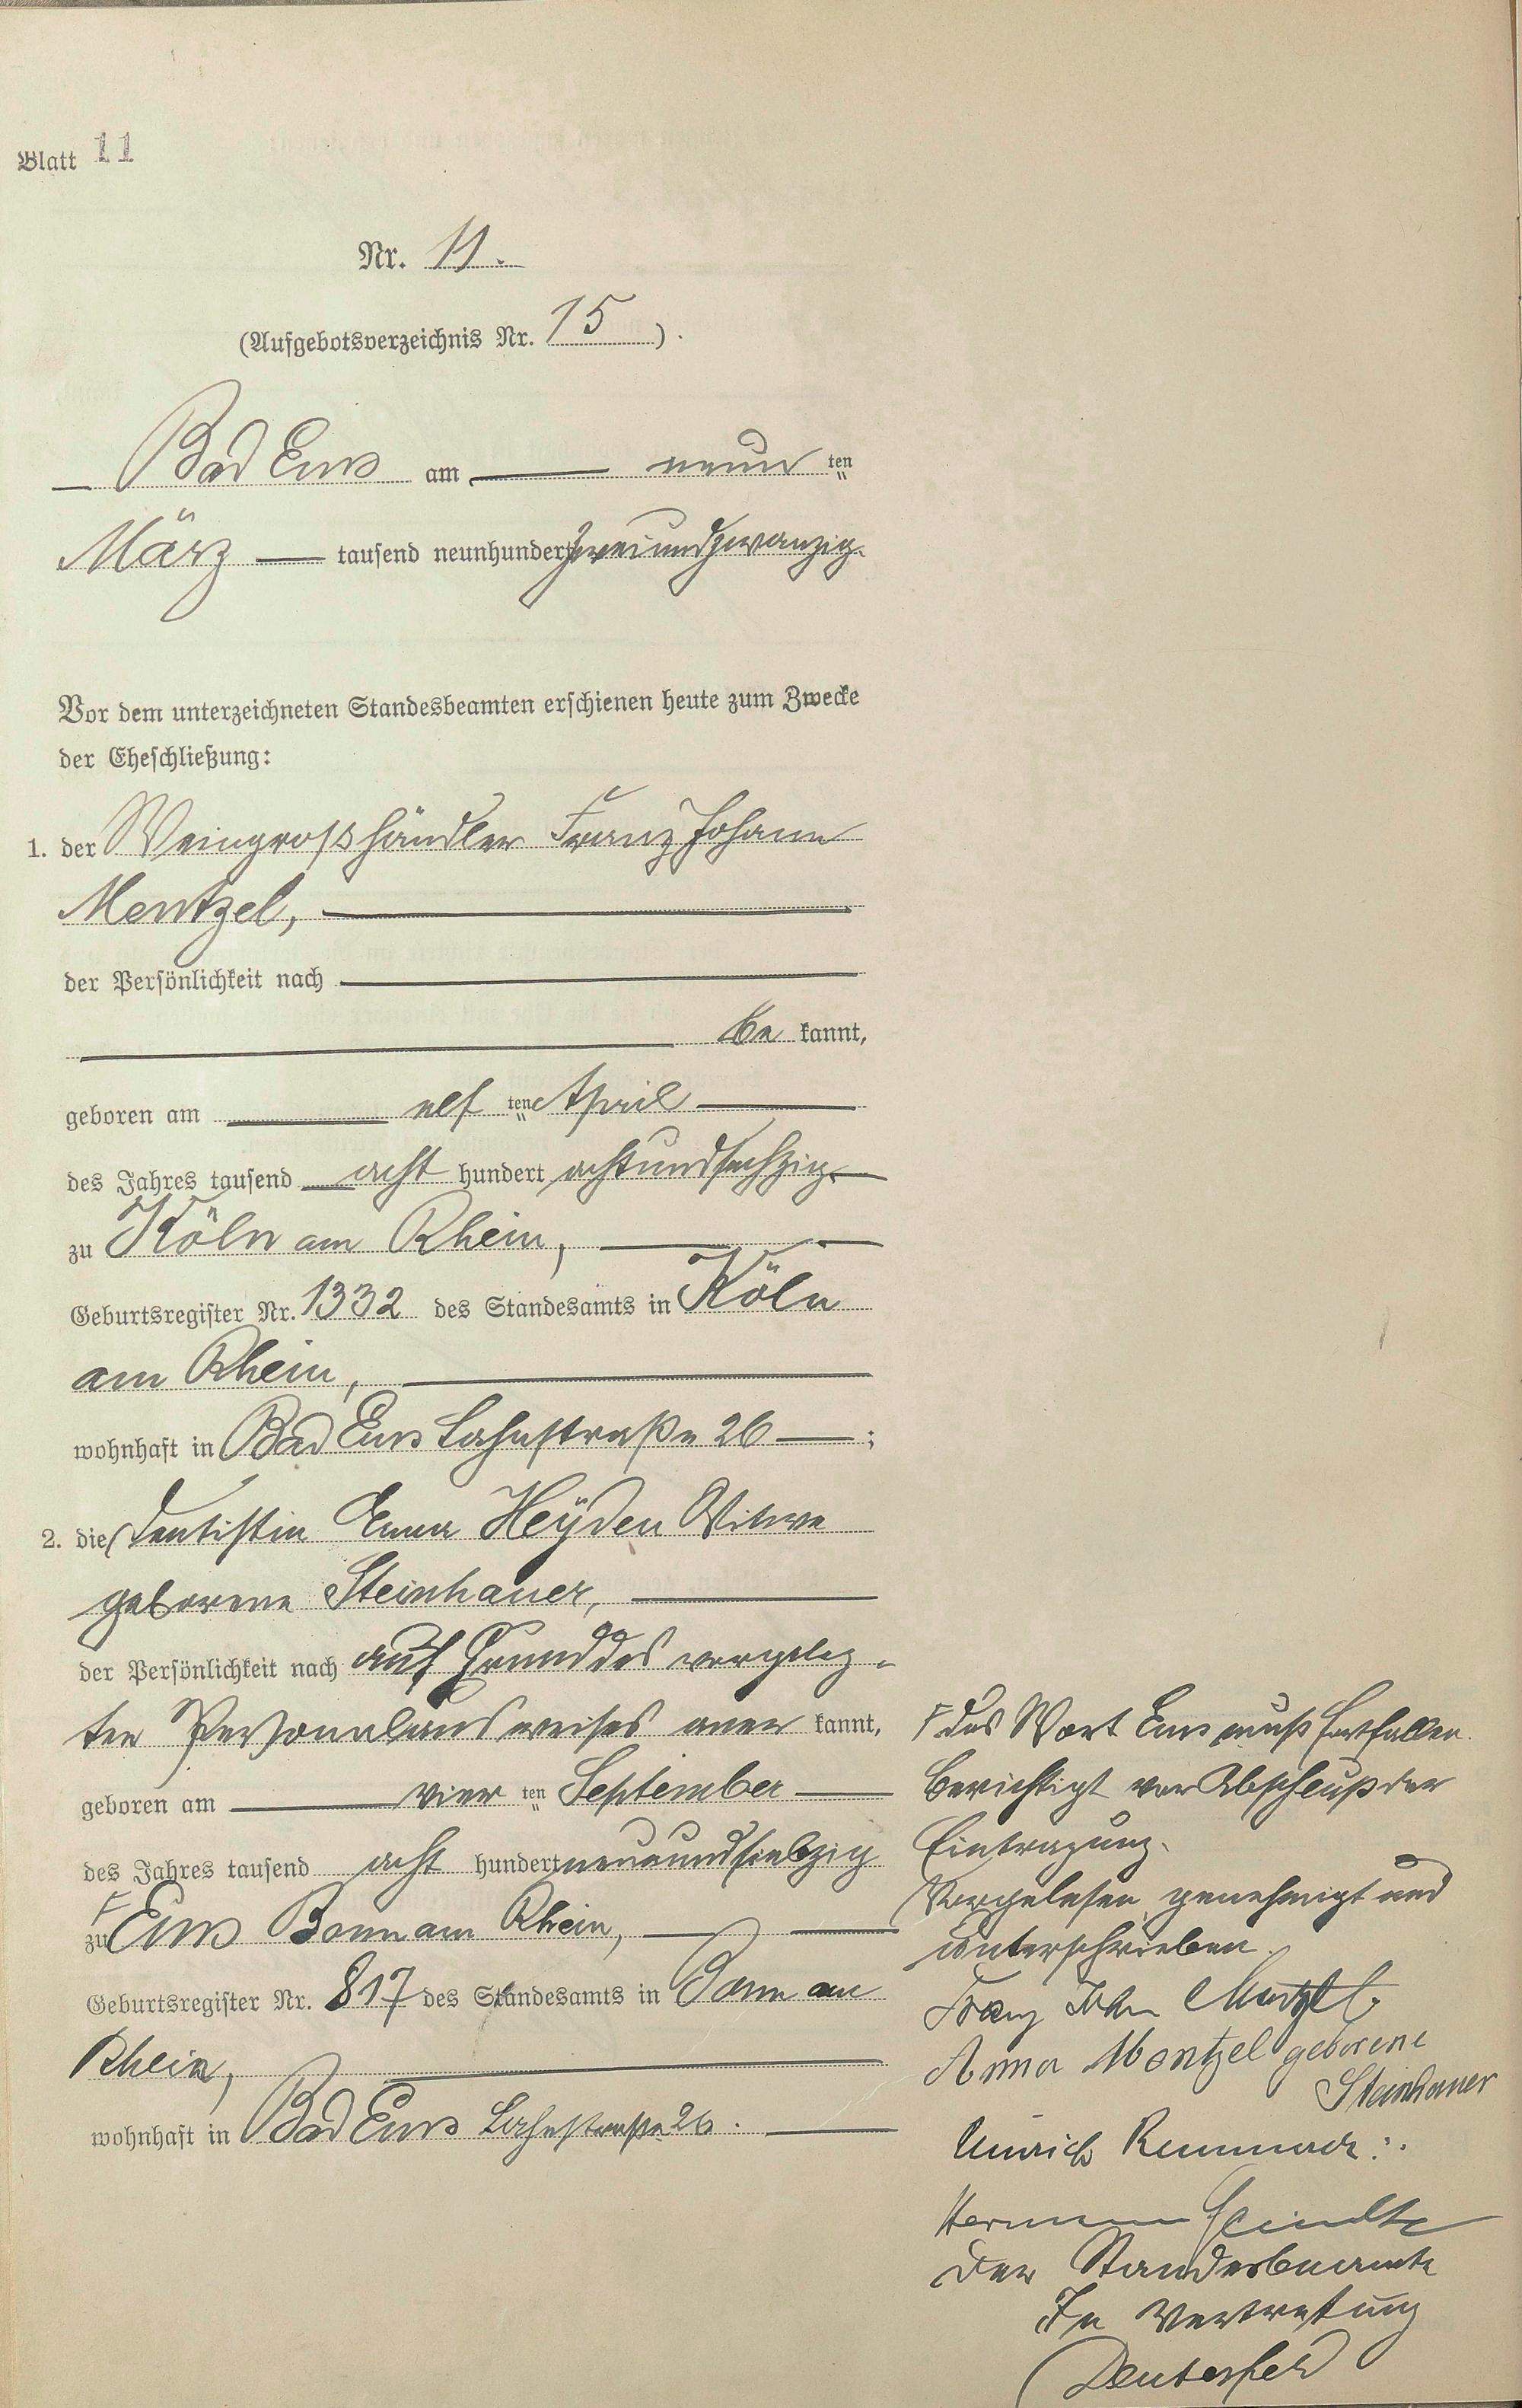 Blatt 11
Nr. 11.
(Aufgebotsverzeichnis Nr. 15).
Bad Ems am neun ten
März tausend neunhundert zweiundzwanzig.
Vor dem unterzeichneten Standesbeamten erschienen heute zum Zwecke
der Eheschließung:
1. der Weingroßhändler Franz Johann
Mentzel,
der Persönlichkeit nach
be kannt,
geboren am elf ten April
des Jahres tausend acht hundert achtundsechzig
zu Köln am Rhein,
Geburtsregister Nr. 1332 des Standesamts in Köln
am Rhein,
wohnhaft in Bad Ems Lahnstraße 26 ;
2. die Dentistin Anna Heÿden Witwe
geborene Steinhauer,
der Persönlichkeit nach auf Grund des vorgeleg-
ten Personalausweises aner kannt,
geboren am vier ten September
des Jahres tausend acht hundert neunundsiebzig
zu Ems Bonn am Rhein,
Geburtsregister Nr. 817 des Standesamts in Bonn am
Rhein,
wohnhaft in Bad Ems Lahnstraße 26.
F das Wort Ems muß fortfallen.
Berichtigt vor Abschluß der
Eintragung.
Vorgelesen, genehmigt und
unterschrieben.
Franz Joh. Mentzel.
Anna Mentzel geborene
Steinhauer
Hermann
Der Standesbeamte
In Vertretung